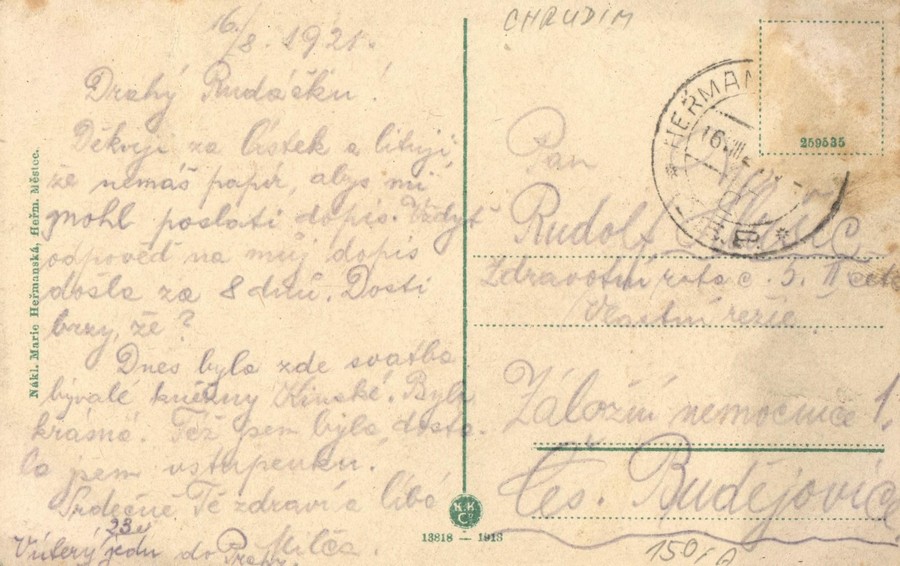 16/8. 1921.
CHRUDIM
Drahý Rudášku!
Děkuji za lístek a lituji,
že nemáš papír, abys mi
mohl poslati dopis. Vždyť
odpověď na můj dopis
došla za 8 dnů. Dosti
brzy, že?
Dnes byla zde svatba
bývalé kněžny Kinské. Byla
krásná. Též jsem byla, dosta-
la jsem vstupenku.
Srdečně Tě zdraví a líbá
Milča.
V úterý 23. jedu do Prahy.
Nákl. Marie Heřmanská, Heřm. Městec.
K.K.
C°
13818 — 1913
HEŘMAN
16.VIII.21
259535
Pan
Rudolf
Zdravotní rota č. 5. II četa
Vlastní režie.
Záložní nemocnice 1.
Čes. Budějovice
150